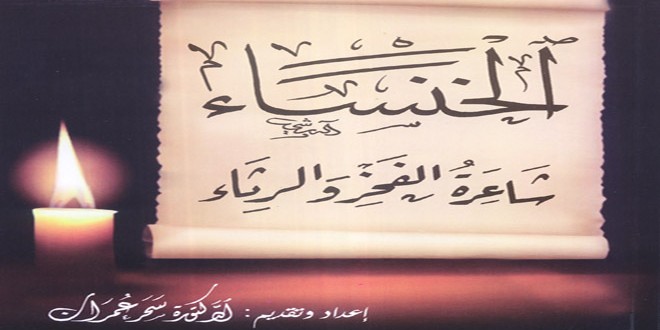 الخنساء
شَاعِرَةُ الفَخْرِ وَالرِثَاء
إعداد وتقديم: الدكتورة سَحَر عُمرَان